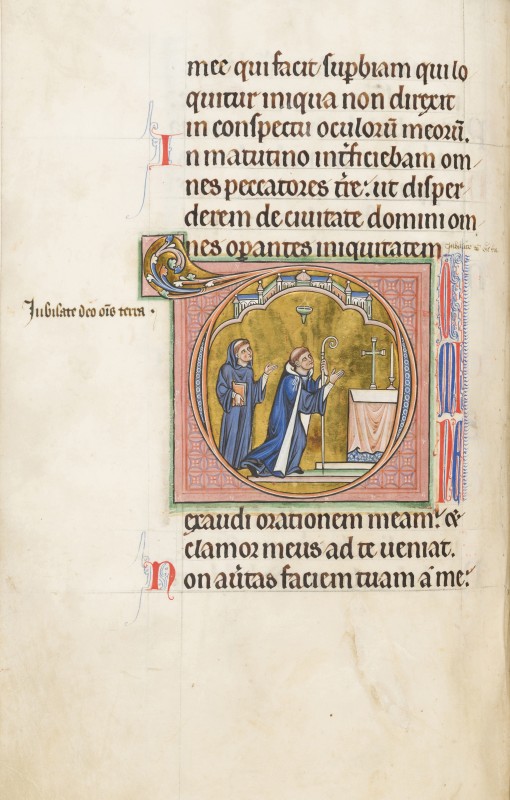 mee qui facit suꝑbiam qui lo
quitur iniqua non direxit
in conspectu oculorū meorū.
In matutino int̄ficiebam om
nes peccatores tr̄e: ut disper
derem de ciuitate domini om
nes oꝑantes iniquitatem
Iubilate deo oīs terra .
D
exaudi orationem meam: &
clamor meus ad te ueniat.
Non au̅tas faciem tuam a me: